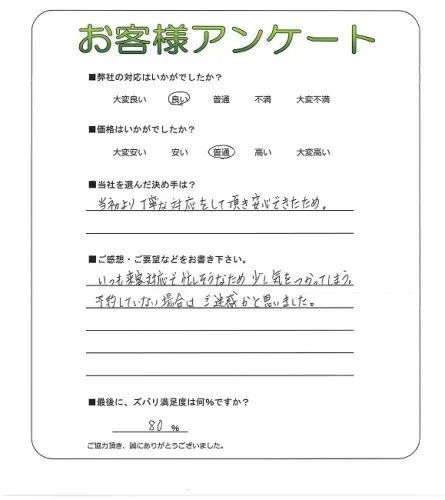 お客様アンケート
■弊社の対応はいかがでしたか？
大変良い 良い 普通 不満 大変不満
■価格はいかがでしたか？
大変安い 安い 普通 高い 大変高い
■当社を選んだ決め手は？
当初より丁寧な対応をして頂き安心できたため。
■ご感想・ご要望などをお書き下さい。
いつも来客対応で忙しそうなため少し気をつかってしまう。
予約していない場合はご迷惑かと思いました。
■最後に、ズバリ満足度は何%ですか？
80 %
ご協力頂き、誠にありがとうございました。